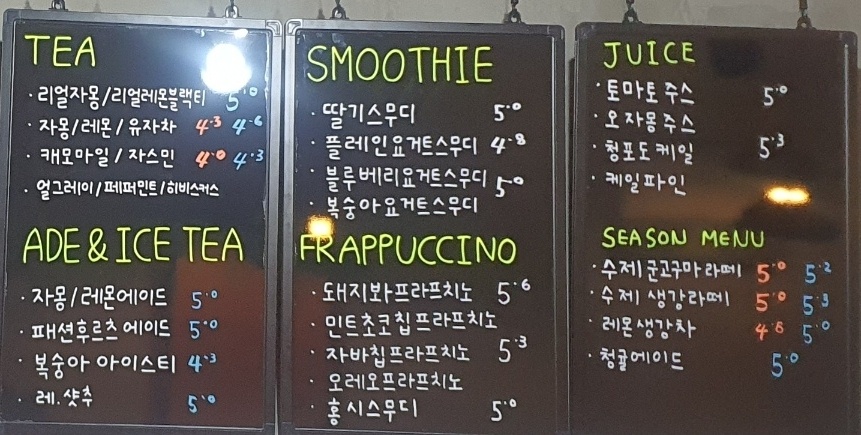 TEA
· 리얼자몽/리얼레몬블랙티 5.0
· 자몽/레몬/유자차 4.3 4.6
· 캐모마일/자스민 4.0 4.3
· 얼그레이/페퍼민트/히비스커스
ADE & ICE TEA
· 자몽/레몬에이드 5.0
· 패션후르츠에이드 5.0
· 복숭아 아이스티 4.3
· 레.샷추 5.0
SMOOTHIE
· 딸기스무디 5.0
· 플레인요거트스무디 4.8
· 블루베리요거트스무디 5.0
· 복숭아요거트스무디
FRAPPUCCINO
· 돼지봐프라프치노 5.6
· 민트초코칩프라프치노
· 자바칩프라프치노 5.3
· 오레오프라프치노
· 홍시스무디 5.0
JUICE
· 토마토주스 5.0
· 오자몽주스
· 청포도케일 5.3
· 케일파인
SEASON MENU
· 수제군고구마라떼 5.0 5.2
· 수제 생강라떼 5.0 5.3
· 레몬생강차 4.8 5.0
· 청귤에이드 5.0